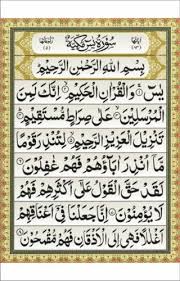 سُورَةُ يٰسٓ مَكِّيَّةٌ
بِسْمِ اللّٰهِ الرَّحْمٰنِ الرَّحِيْمِ
يٰسٓ ۚ وَالْقُرْاٰنِ الْحَكِيْمِ ۙ اِنَّكَ لَمِنَ
الْمُرْسَلِيْنَ ۙ عَلٰى صِرَاطٍ مُّسْتَقِيْمٍ ؕ
تَنْزِيْلَ الْعَزِيْزِ الرَّحِيْمِ ۙ لِتُنْذِرَ قَوْمًا
مَّاۤ اُنْذِرَ اٰبَآؤُهُمْ فَهُمْ غٰفِلُوْنَ
لَقَدْ حَقَّ الْقَوْلُ عَلٰۤى اَكْثَرِهِمْ فَهُمْ
لَا يُؤْمِنُوْنَ اِنَّا جَعَلْنَا فِيْۤ اَعْنَاقِهِمْ
اَغْلٰلًا فَهِيَ اِلَى الْاَذْقَانِ فَهُمْ مُّقْمَحُوْنَ